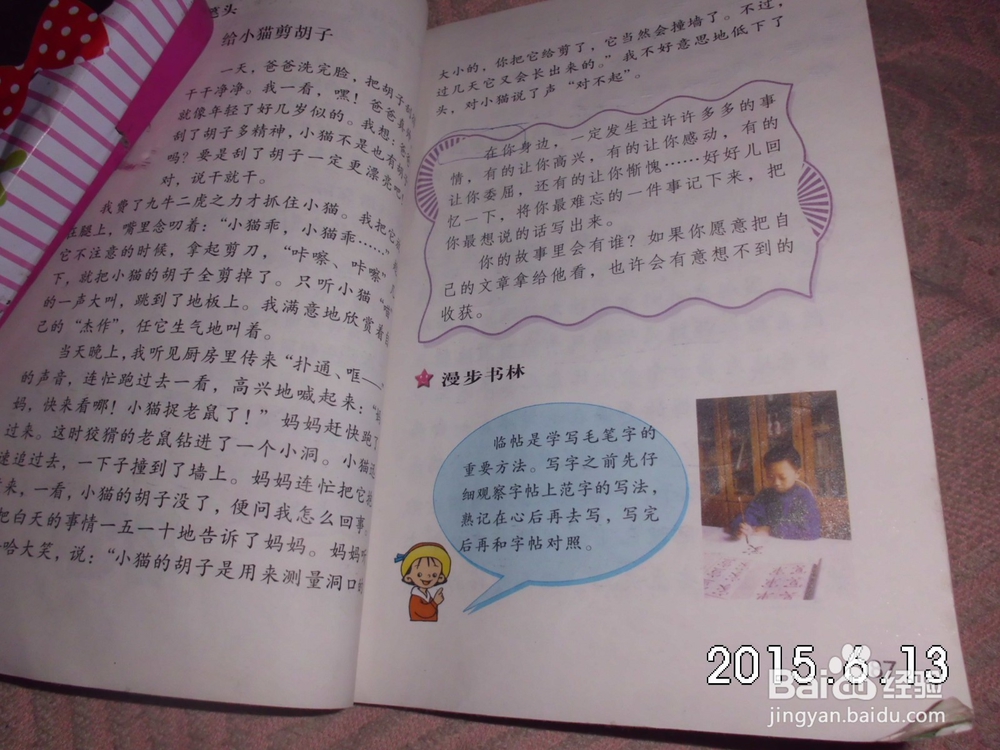 笔头
给小猫剪胡子
一天，爸爸洗完脸，把胡子
干干净净。我一看，嘿！爸爸
就像年轻了好几岁似的。我想：爸
刮了胡子多精神，小猫不是也有胡
吗？要是刮了胡子一定更漂亮吧
对，说干就干。
我费了九牛二虎之力才抓住小猫。我把它
在腿上，嘴里念叨着：“小猫乖，小猫乖……”
它不注意的时候，拿起剪刀，“咔嚓、咔嚓”
下，就把小猫的胡子全剪掉了。只听小猫“喵
的一声大叫，跳到了地板上。我满意地欣赏着
己的“杰作”，任它生气地叫着。
当天晚上，我听见厨房里传来“扑通、哐——
的声音，连忙跑过去一看，高兴地喊起来：“
妈，快来看哪！小猫捉老鼠了！”妈妈赶快跑了
过来。这时狡猾的老鼠钻进了一个小洞。小猫
速追过去，一下子撞到了墙上。妈妈连忙把它
来，一看，小猫的胡子没了，便问我怎么回事。
把白天的事情一五一十地告诉了妈妈。妈妈
哈大笑，说：“小猫的胡子是用来测量洞口
大小的，你把它给剪了，它当然会撞墙了。不过，
过几天它又会长出来的。”我不好意思地低下了
头，对小猫说了声“对不起”。
在你身边，一定发生过许许多多的事
情，有的让你高兴，有的让你感动，有的
让你委屈，还有的让你惭愧……好好儿回
忆一下，将你最难忘的一件事记下来，把
你最想说的话写出来。
你的故事里会有谁？如果你愿意把自
己的文章拿给他看，也许会有意想不到的
收获。
漫步书林
临帖是学写毛笔字的
重要方法。写字之前先仔
细观察字帖上范字的写法，
熟记在心后再去写，写完
后再和字帖对照。
2015.6.13
Baidu经验
jingyan.baidu.com